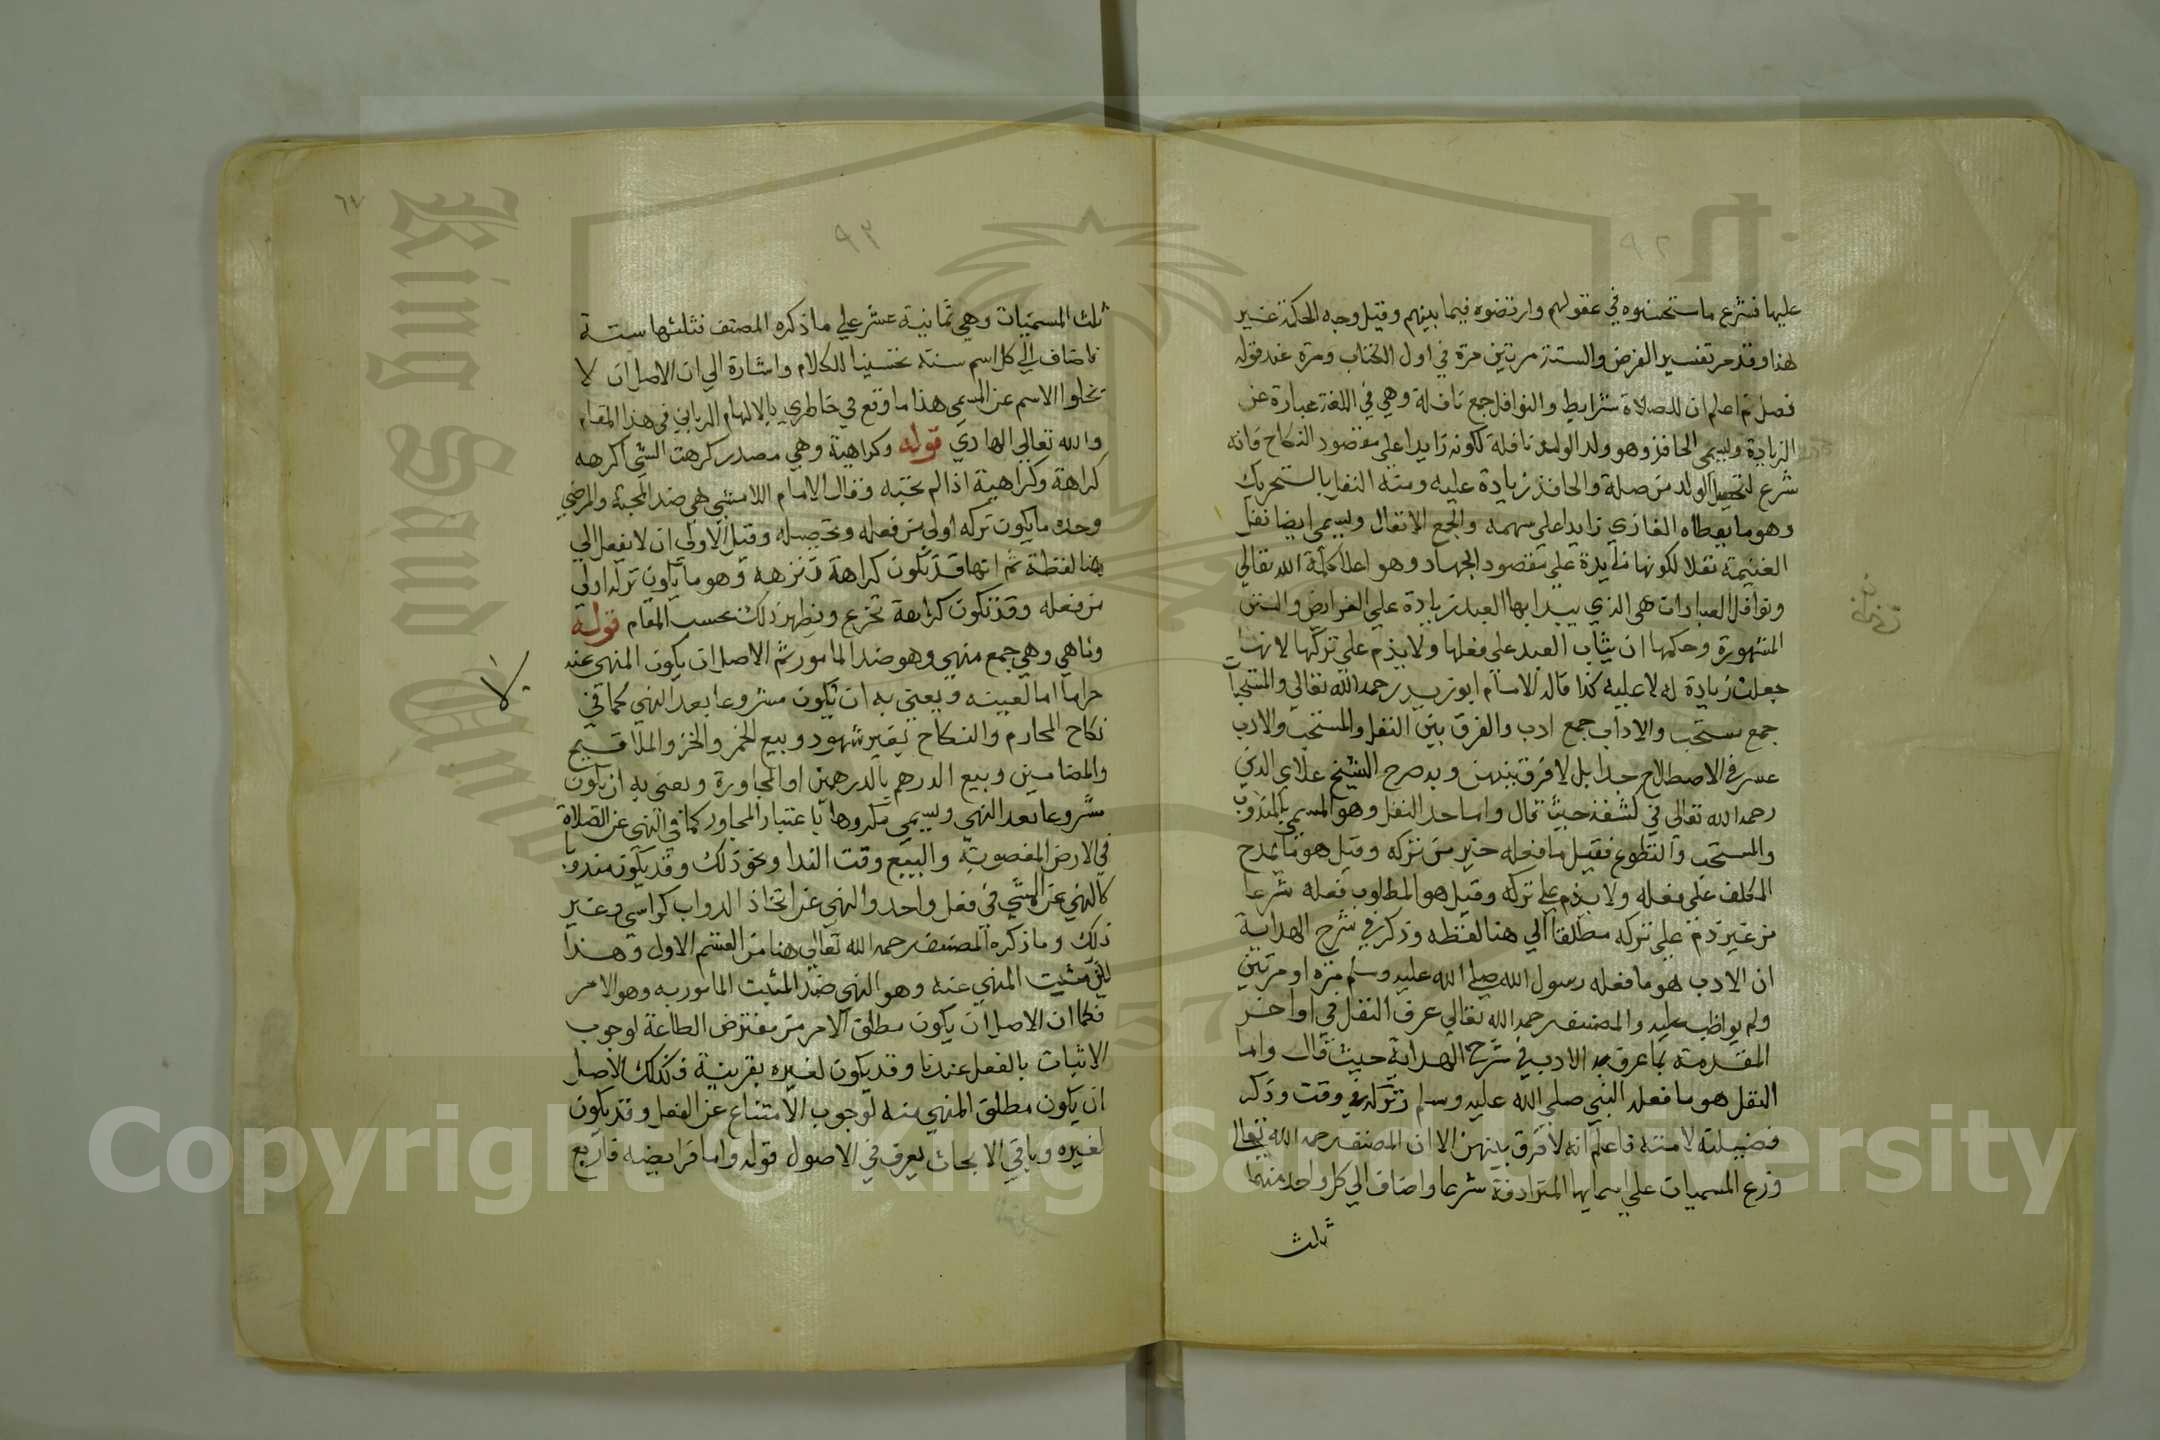 ٩٢
عليها فشرع ما استحسنوه في عقولهم وارتضوه فيما بينهم وقيل وجه الحكمة غير
هذا وقد مر تفسير الفرض والسنة مرتين مرة في اول الكتاب ومرة عند قوله
فصل ثم اعلم ان للصلاة شرايط والنوافل جمع نافلة وهي في اللغة عبارة عن
الزيادة ويسمى الحافد وهو ولد الولد نافلة لكونه زايدا على مقصود النكاح فانه
شرع لتحصيل الولد من صلبه والحافد زيادة عليه ومنه النفل بالتحريك
وهو ما يعطاه الغازي زايدا على سهمه والجمع الانفال ويسمى ايضا نفل
الغنيمة نفلا لكونها زايدة على مقصود الجهاد وهو اعلا كلمة الله تعالى
ونوافل العبادات هي الذي يبدا بها العبد زيادة على الفرايض والسنن
المشهورة وحكمها ان يثاب العبد على فعلها ولا يذم على تركها لانها
جعلت زيادة له لا عليه كذا قاله الامام ابو زيد رحمه الله تعالى والمستحبات
جمع مستحب والاداب جمع ادب والفرق بين النفل والمستحب والادب
عسر في الاصطلاح جدا بل لا فرق بينهن وبه صرح الشيخ علاي الدين
رحمه الله تعالى في كشفه حيث قال واما حد النفل وهو المسمى بالمندوب
والمستحب والتطوع فقيل ما فعله خير من تركه وقيل هو ما يمدح
المكلف على فعله ولا يذم على تركه وقيل هو المطلوب فعله شرعا
من غير ذم على تركه مطلقا الى هنا لفظه وذكر في شرح الهداية
ان الادب هو ما فعله رسول الله صلى الله عليه وسلم مرة او مرتين
ولم يواظب عليه والمصنف رحمه الله تعالى عرف النفل في اواخر
المقدمة بما عرف به الادب في شرح الهداية حيث قال واما
النفل هو ما فعله النبي صلى الله عليه وسلم وتركه في وقت وذكر
فضيلته لامته فاعلم انه لا فرق بينهن الا ان المصنف رحمه الله تعالى
وزع المسميات على اسمايها المترادفة شرعا واضاف الى كل واحد منها
ثلث
٩٣
٦٧
ثلث المسميات وهي ثمانية عشر على ما ذكره المصنف فثلثها ستة
فاضاف الى كل اسم ستة تحسينا للكلام واشارة الى ان الاصل ان لا
تخلوا الاسم عن المسمى هذا ما وقع في خاطري بالالهام الرباني في هذا المقام
والله تعالى الهادي قوله وكراهية وهي مصدر كرهت الشي اكرهه
كراهة وكراهية اذا لم تحبه وقال الامام اللامشي هي ضد المحبة والرضي
وحده ما يكون تركه اولى من فعله وتحصيله وقيل الاولى ان لا يفعل الى
هنا لفظه ثم انها قد تكون كراهة تنزهه وهو ما يكون تركه اولى
من فعله وقد تكون كراهة تحرم ويظهر ذلك بحسب المقام قوله
وناهي وهي جمع منهي وهو ضد المامور ثم الاصل ان يكون المنهي عنه
حراما اما لعينه ويعني به ان يكون مشروعا بعد النهي كما في
نكاح المحارم والنكاح بغير شهود وبيع الخمر والحر والملاقيح
والمضامين وبيع الدرهم بالدرهمين او المجاورة ويعني به ان يكون
مشروعا بعد النهي ويسمى مكروها باعتبار المجاور كما في النهي عن الصلاة
في الارض المغصوبة والبيع وقت الندا ونحو ذلك وقد يكون مندوبا
كالنهي عن المشي في نعل واحد والنهي عن اتخاذ الدواب كراسي وغير
ذلك وما ذكره المصنف رحمه الله تعالى هنا من القسم الاول وهذا
المنهي عنه وهو النهي ضد المثبت المامور به وهو الامر
فكما ان الاصل ان يكون مطلق الامر من مفترض الطاعة لوجوب
الاثبات بالفعل عندنا وقد يكون لغيره بقرينة فكذلك الاصل
ان يكون مطلق المنهي منه لوجوب الامتناع عن الفعل وقد يكون
لغيره وباقي الابحاث يعرف في الاصول قوله واما فرايضه فاربع
Copyright © King Saud University
King Saud University
1957